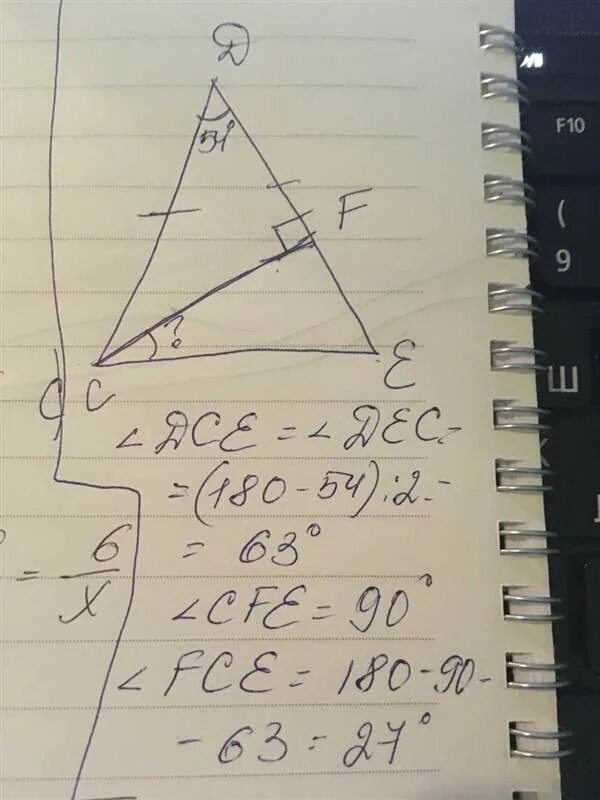 D
54°
F
?
C
C
E
∠DCE = ∠DEC =
= (180 - 54) : 2 =
= 63°
= 6/x
∠CFE = 90°
∠FCE = 180 - 90 -
- 63 = 27°
F10
(
9
Ш